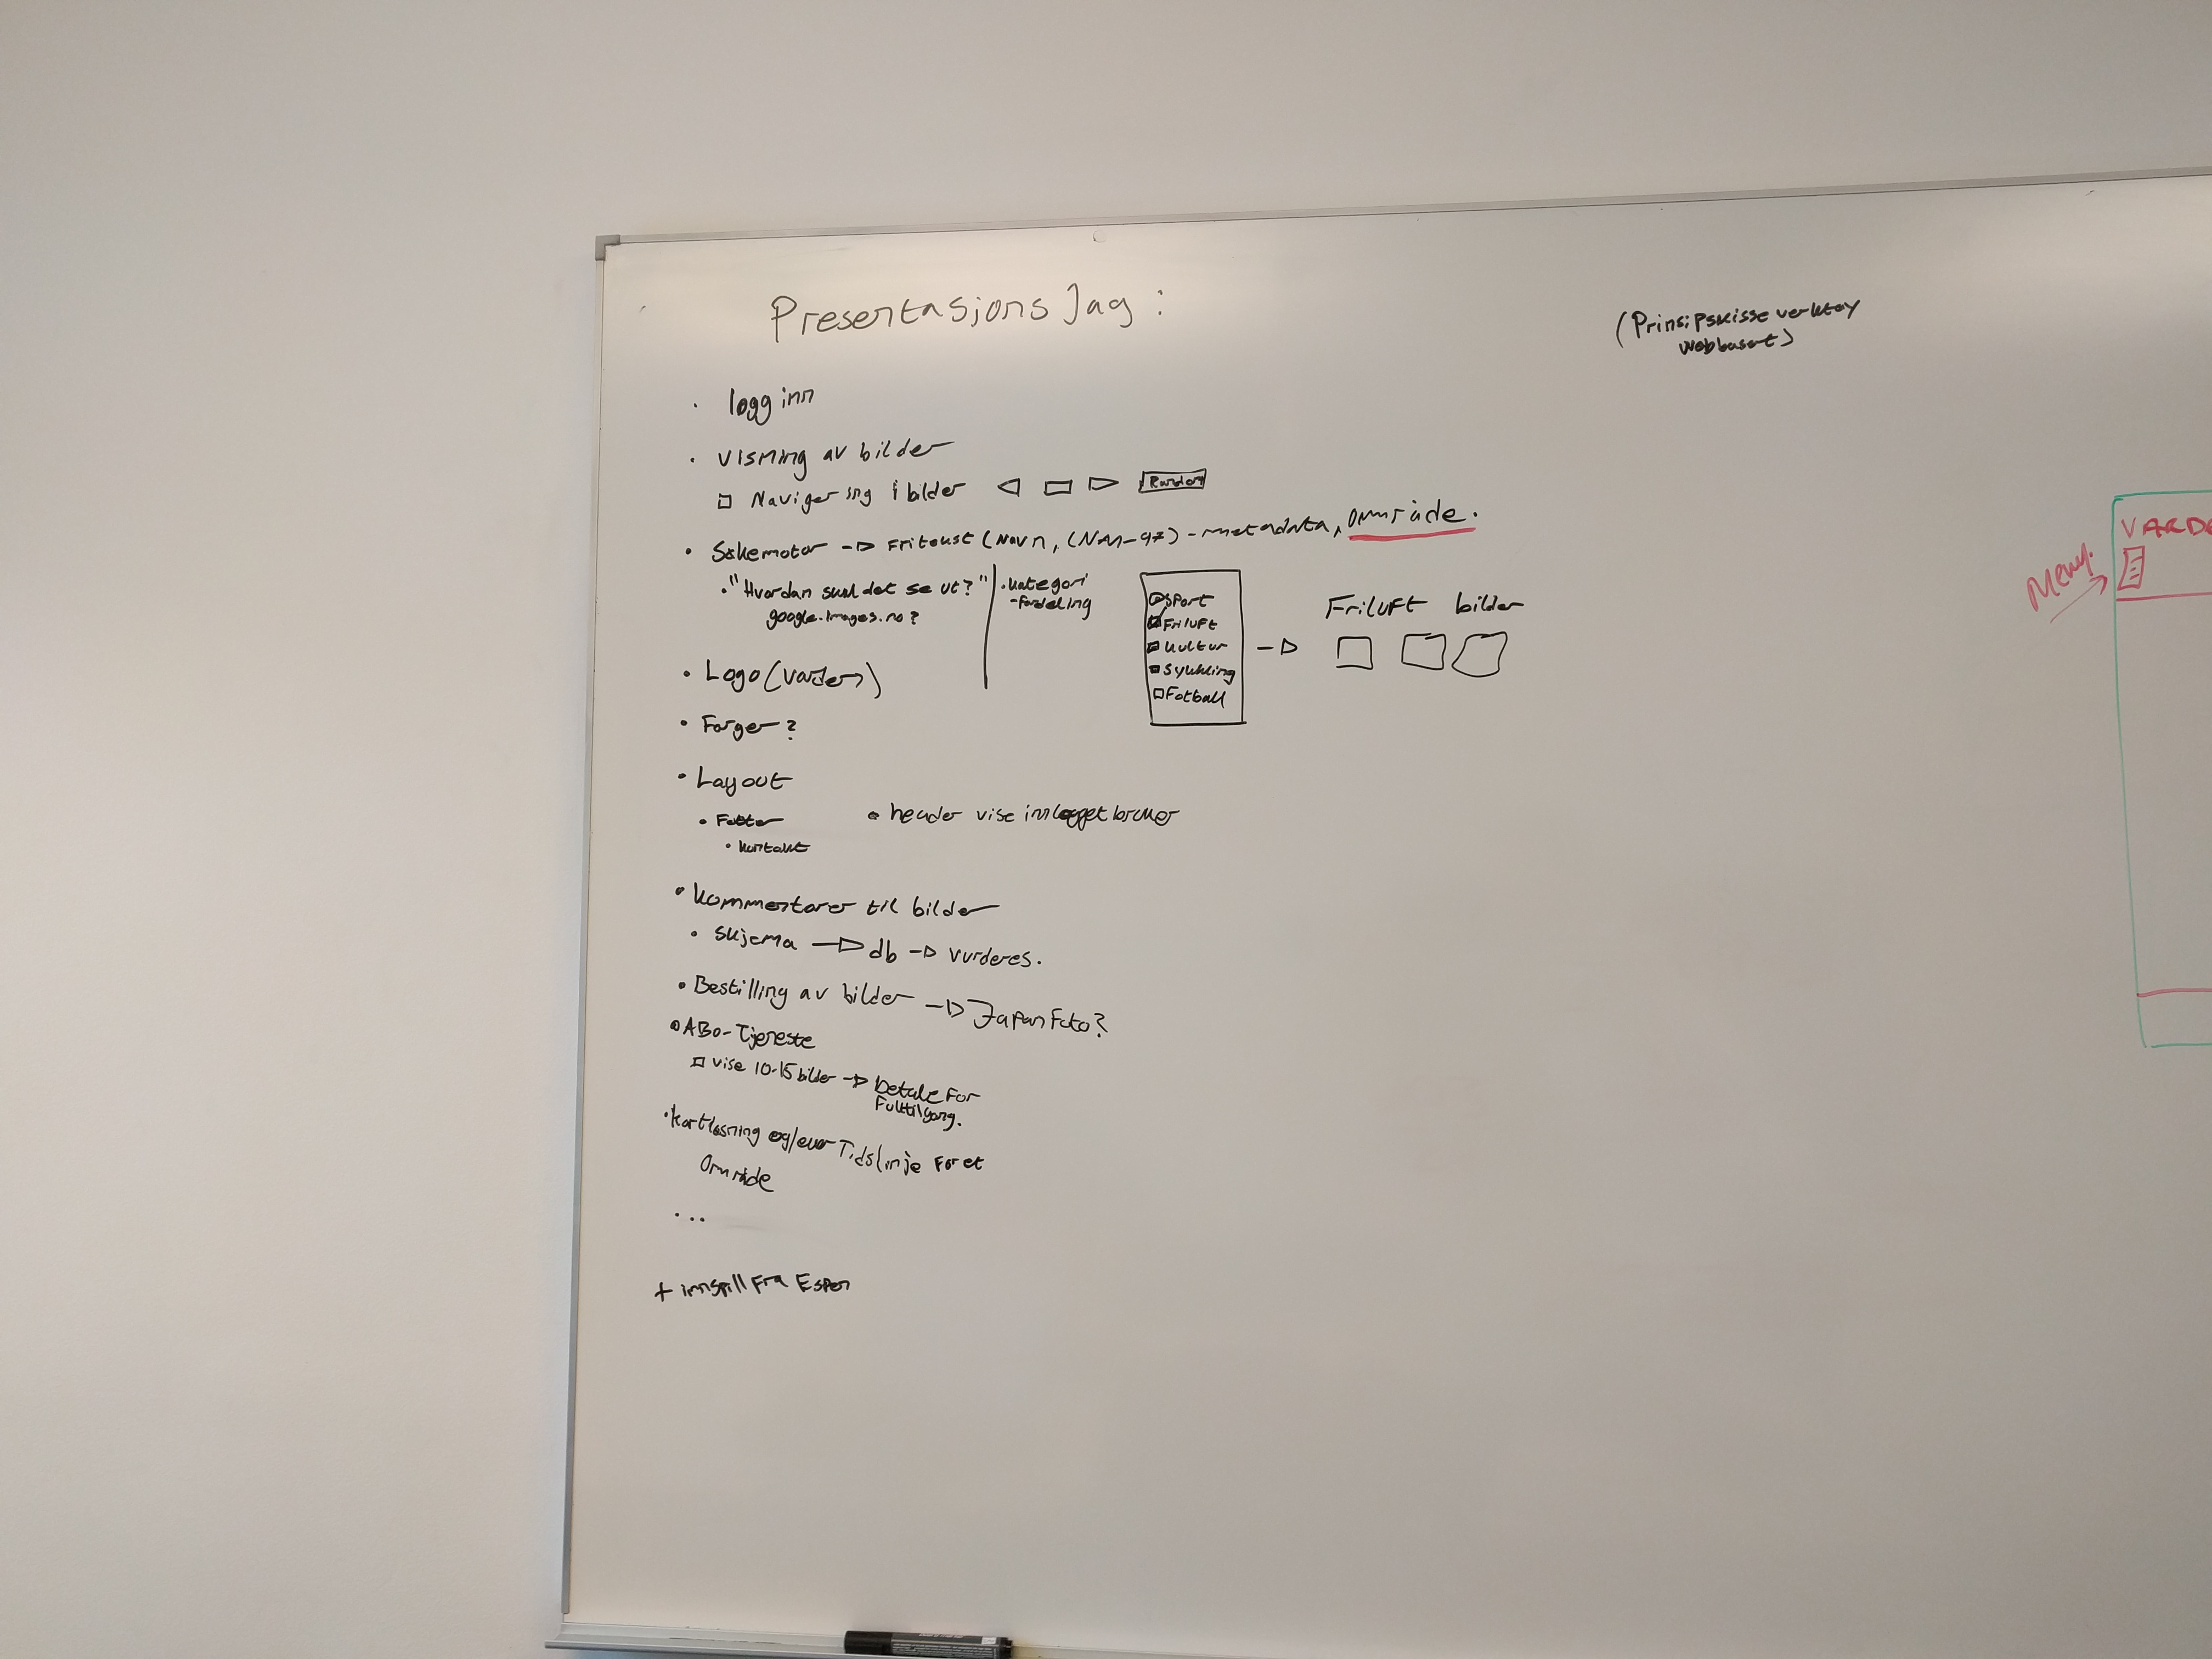 Presentasjonslag:
(Prinsipskisse verktøy
webbasert)
• logg inn
• visning av bilder
□ Navigering i bilder ◁ □ ▷ Random
• Søkemotor → Fritekst (Navn, (NAN-97) - metadata, område.
• "Hvordan skal det se ut?"
google.images.no?
• kategori
-fordeling
Sport
Friluft
Kultur
Sykling
Fotball
→ Friluft bilder
• Logo (Varden)
• Farger?
• Layout
• Footer
• kontakt
• header vise innlogget bruker
• Kommentarer til bilder
• skjema → db → vurderes.
• Bestilling av bilder → Japan Foto?
• ABO-Tjeneste
□ vise 10-15 bilder → Betale For
Full tilgang.
• Kartløsning og/eller Tidslinje For et
Område
• ...
+ innspill Fra Espen
Meny.
VARDE